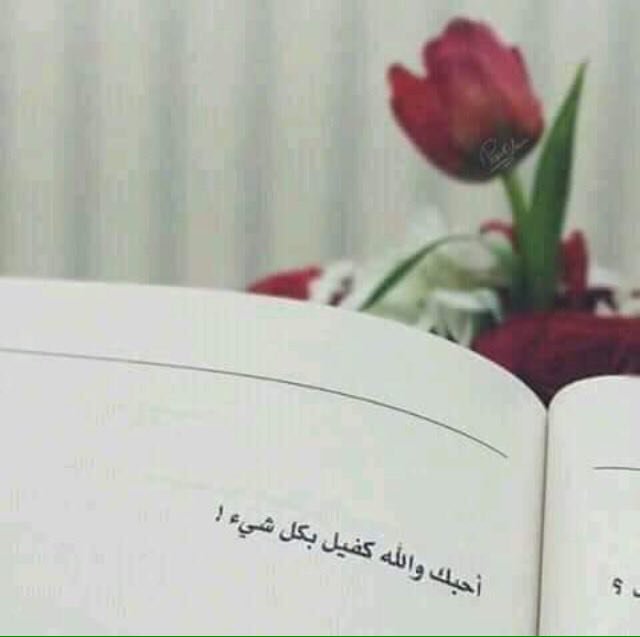 أحبك والله كفيل بكل شيء !
؟